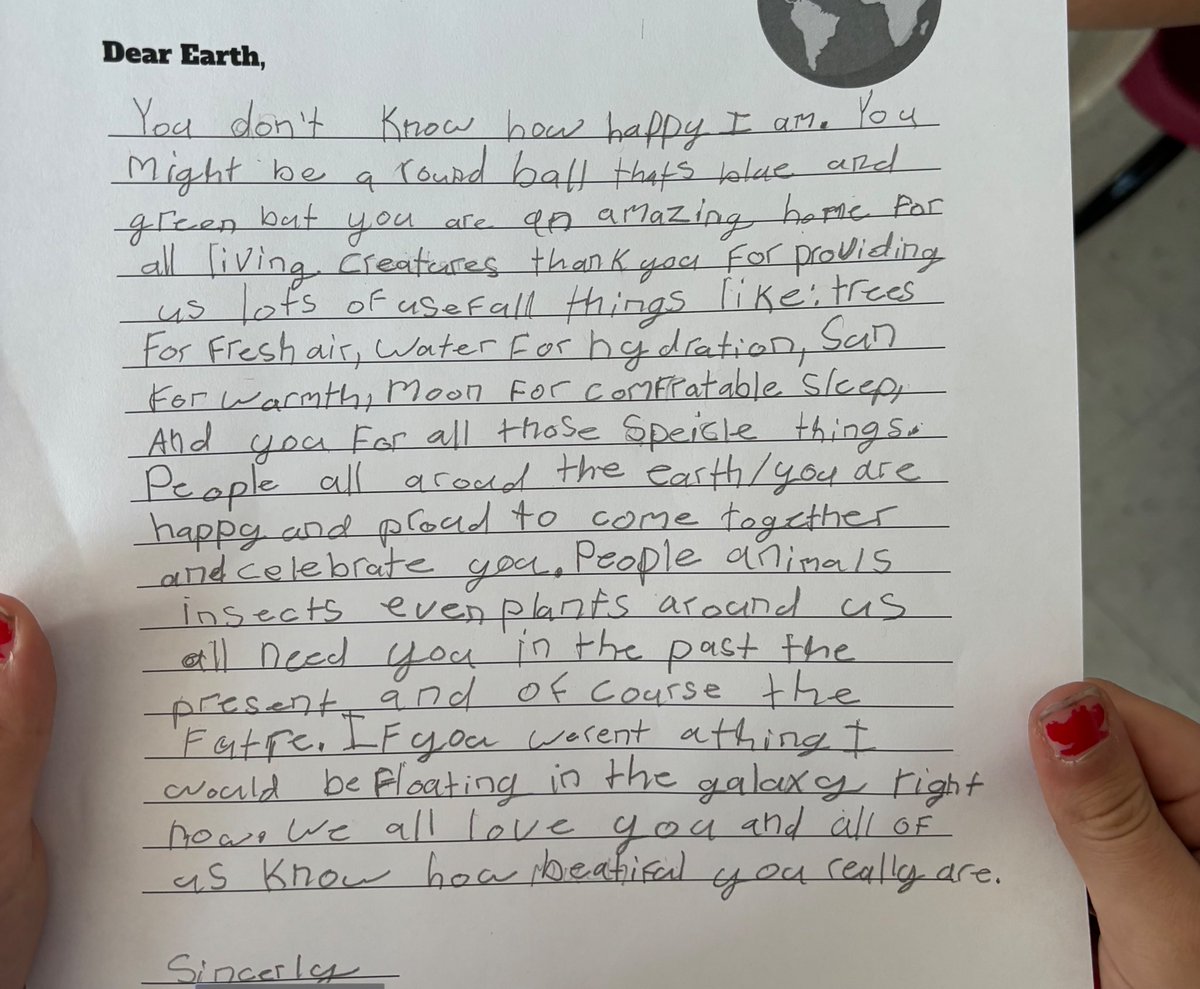 Dear Earth,
You don't know how happy I am. You
might be a round ball thats blue and
green but you are an amazing home for
all living creatures thank you for providing
us lots of usefull things like: trees
for fresh air, water for hydration, Sun
for warmth, moon for comfratable sleep,
And you for all those speicle things.
People all aroud the earth/you are
happy and proud to come together
and celebrate you. People animals
insects even plants around us
all need you in the past the
present and of course the
Futre. If you werent a thing I
would be floating in the galaxy right
now. We all love you and all of
us know how beatiful you really are.
Sincerly